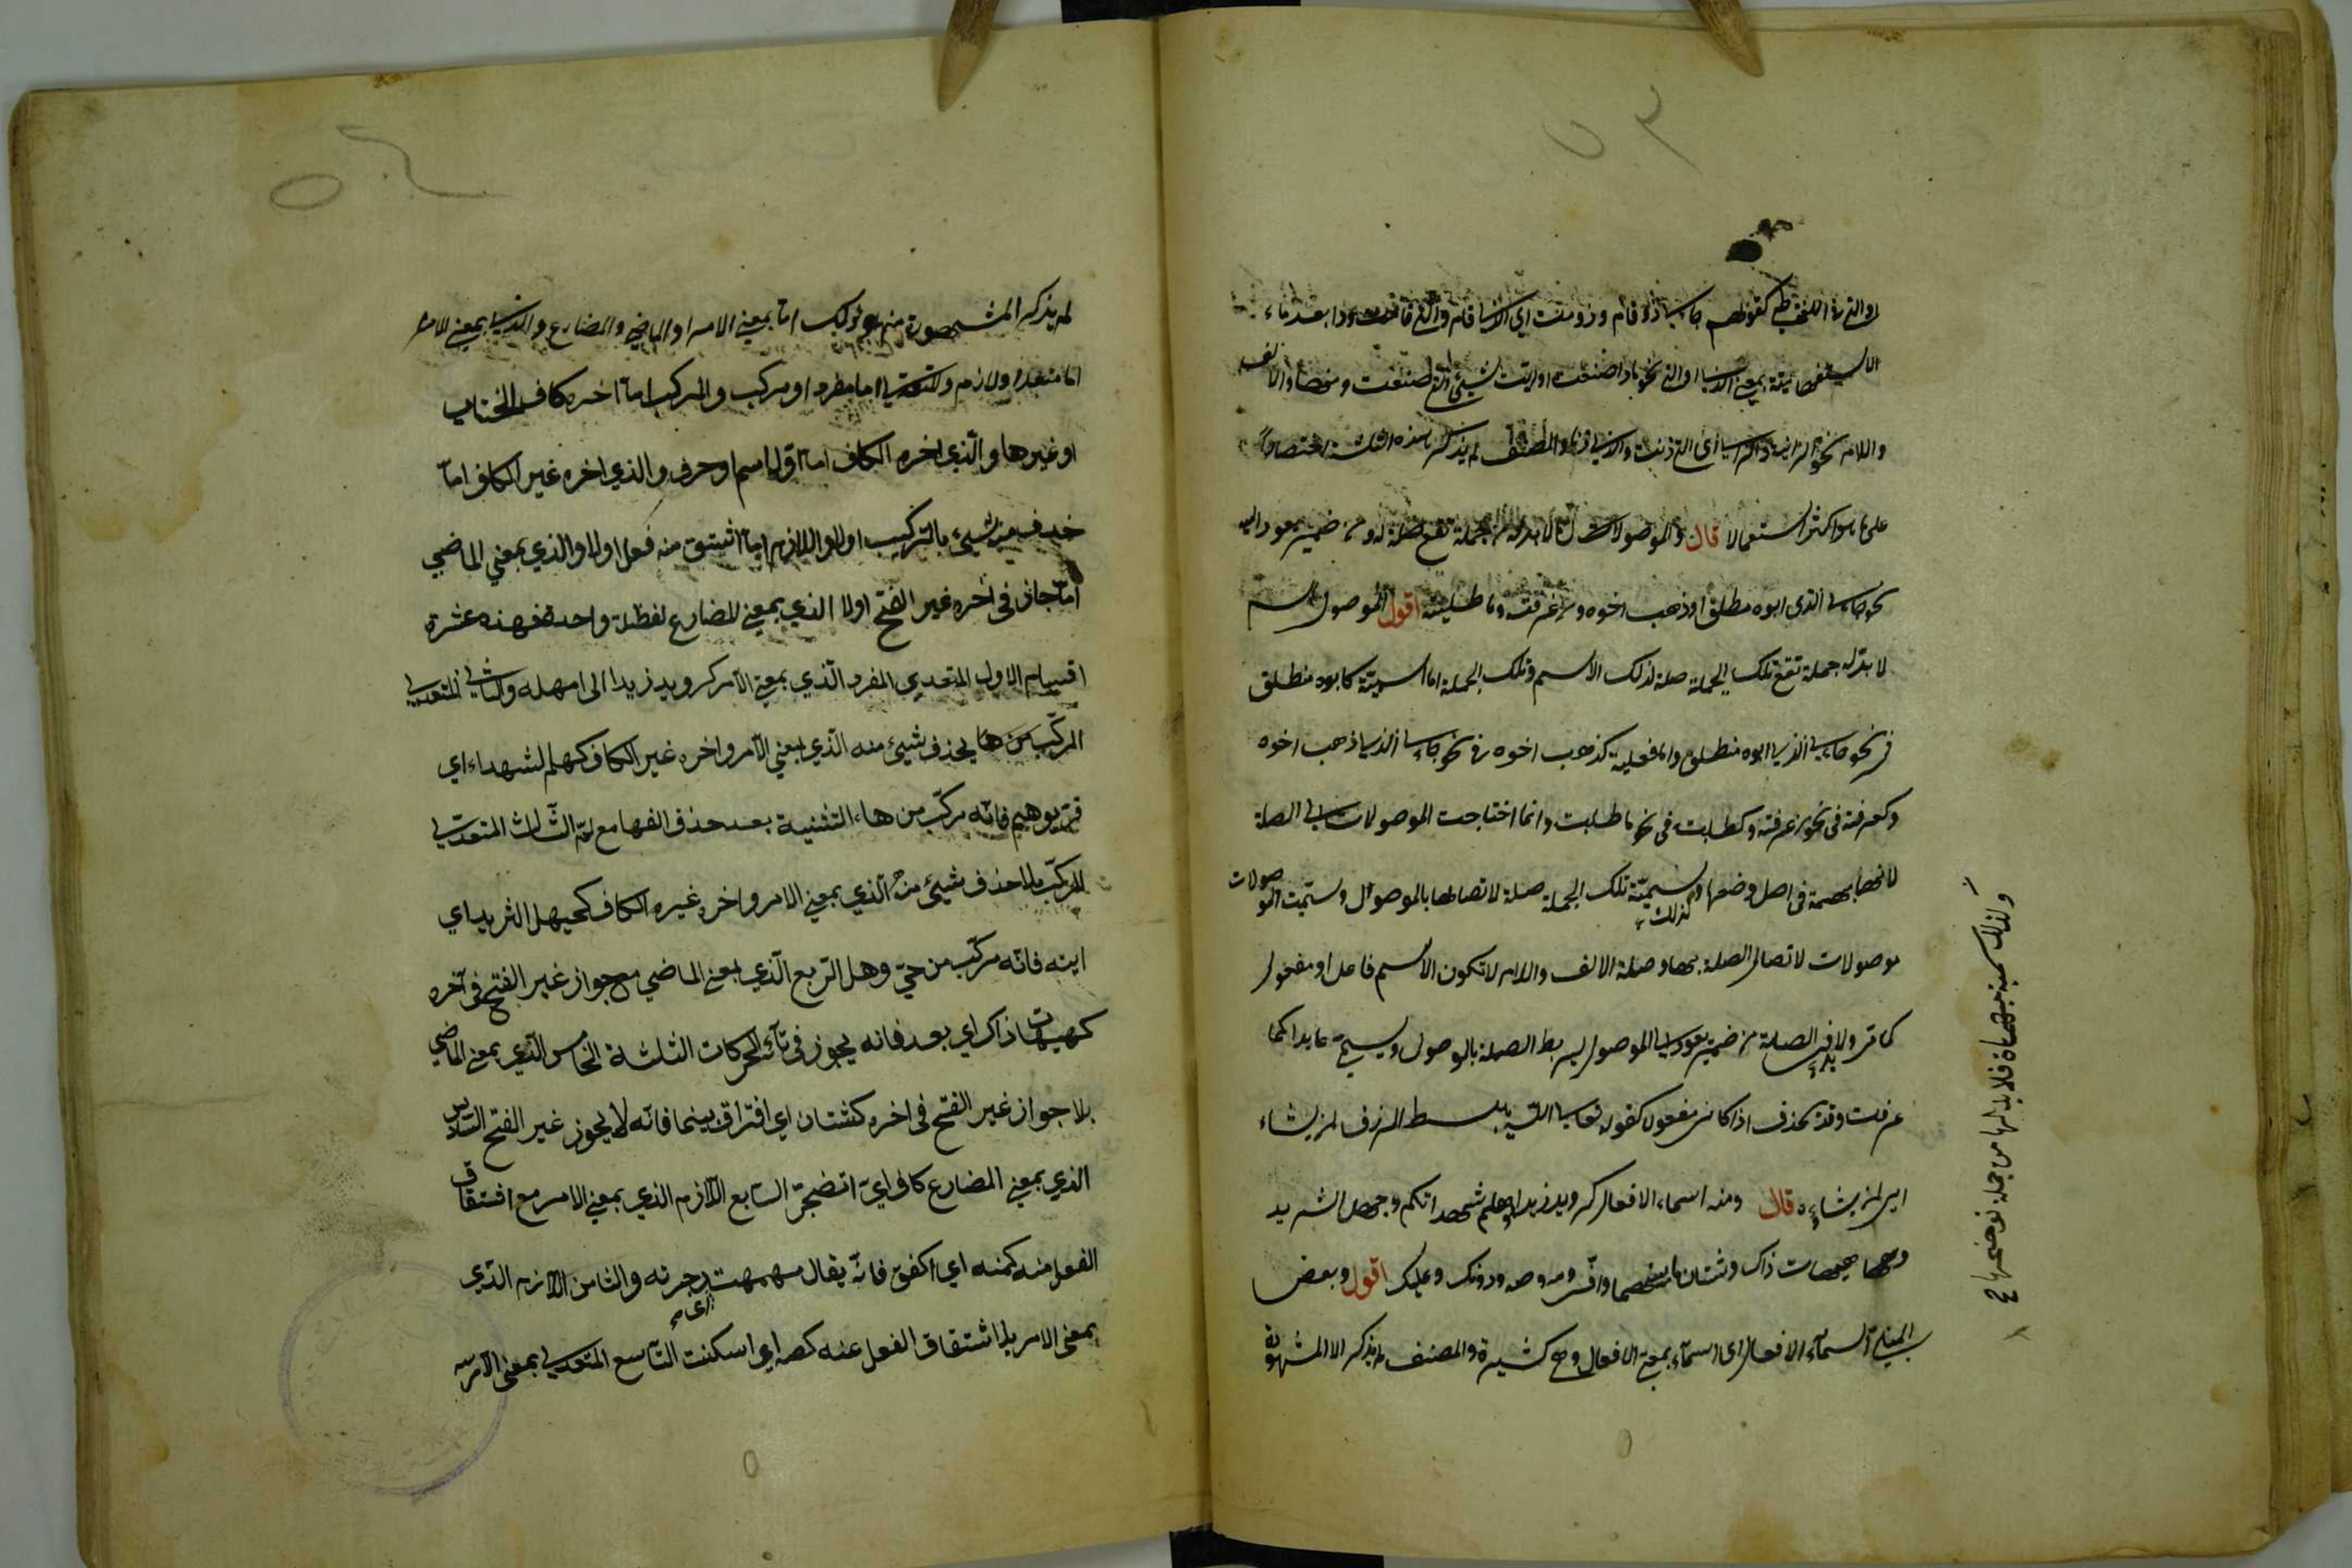 ٥٣
او التي في اللغة طي كقولهم جاءني ذو قام وذو قامت اي الذي قام والتي قامت وذا بعد ماء
الاستفهامية بمعنى الذي او التي نحو ماذا صنعت اي شيئ الذي صنعت والالف
واللام نحو الزانية والزاني اي التي زنت والذي زنى والمصنف لم يذكر هذه الثلثة اختصارا
على ما هو اكثر استعمالا قال والموصولات لا بد له من جملة تقع صلة له ومن ضمير يعود اليه
نحو جاءني الذي ابوه منطلق او ذهب اخوه ومن عرفته وما طلبته اقول الموصول اسم
لا بد له جملة تقع تلك الجملة صلة لذلك الاسم وتلك الجملة اما اسمية كابوه منطلق
في نحو جاءني الذي ابوه منطلق واما فعلية كذهب اخوه في نحو جاءني الذي ذهب اخوه
وكعرفته في نحو من عرفته وكطلبت في نحو ما طلبت وانما احتاجت الموصولات الى الصلة
لانها مبهمة في اصل وضعها وسميت تلك الجملة صلة لاتصالها بالموصول وسميت الموصولات
كذلك
موصولات لاتصال الصلة بها وصلة الالف واللام لا تكون الا اسم فاعل او مفعول
كما مر ولا بد في الصلة من ضمير يعود الى الموصول ليربط الصلة بالموصول ويسمى عايدا كما
عرفت وقد يحذف اذا كان مفعولا كقوله تعالى الله يبسط الرزق لمن يشاء
اي لمن يشاءه قال ومنه اسماء الافعال كرويد زيدا وهلم شهداءكم وحيهل الثريد
وهيهات ذاك وشتان ما بينهما واف ومه وصه ودونك وعليك اقول وبعض
المبني اسماء الافعال اي اسماء بمعنى الافعال وهي كثيرة والمصنف لم يذكر الا المشهورة
ولذلك سميت مبهمات فلا بد لها من جملة توضحها ح
٥٤
لم يذكر المشهورة منها وذلك اما بمعنى الامر او الماضي والمضارع والذي بمعنى الامر
اما متعد او لازم والمتعدي اما مفرد او مركب والمركب اما اخره كاف الخطاب
او غيرها والذي اخره الكاف اما اوله اسم او حرف والذي اخره غير الكاف اما
حذف منه شيئ بالتركيب اولا واللازم اما اشتق منه فعل اولا والذي بمعنى الماضي
اما جاز في اخره غير الفتح اولا الذي بمعنى المضارع لفظة واحدة فهذه عشرة
اقسام الاول المتعدي المفرد الذي بمعنى الامر كرويد زيدا اي امهله والثاني المتعدي
المركب من ها يحذف شيئ منه الذي بمعنى الامر واخره غير الكاف كهلم الشهداء اي
قربوهم فانه مركب من هاء التنبية بعد حذف الفها مع لم الثالث المتعدي
المركب بلا حذف شيئ منه الذي بمعنى الامر واخره غيره الكاف كحيهل الثريد اي
ايته فانه مركب من حي وهل الربع الذي بمعنى الماضي مع جواز غير الفتح في آخره
كهيهات ذاك اي بعد فانه يجوز في تائه الحركات الثلثة الخامس الذي بمعنى الماضي
بلا جواز غير الفتح في اخره كشتان اي افترق بينهما فانه لا يجوز غير الفتح السادس
الذي بمعنى المضارع كاف اي اتضجر السابع اللازم الذي بمعنى الامر مع اشتقاق
الفعل منه كمه اي اكفف فانه يقال مهمهت اي زجرته والثامن اللازم الذي
بمعنى الامر بلا اشتقاق الفعل عنه كصه اي اسكت التاسع المتعدي بمعنى الامر